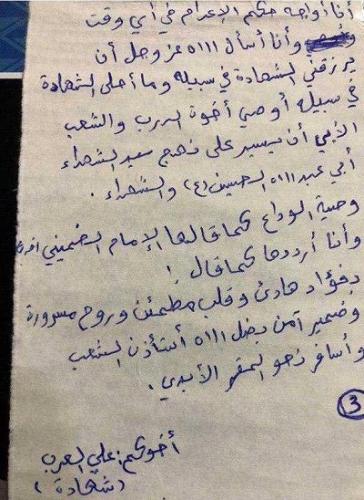 أنا أواجه حكم الإعدام في أي وقت
وأنا أسأل الله عز وجل أن
يرزقني الشهادة في سبيله وما أحلى الشهادة
في سبيله أوصي أخوة الدرب والشعب
الأبي أن يسير على نهج سيد الشهداء
أبي عبد الله الحسين (ع) والشهداء.
وصية الوداع كما قالها الإمام الخميني
وأنا أرددها كما قال:
بفؤاد هادئ وقلب مطمئن وروح مسرورة
وضمير آمن بفضل الله أستأذن الشعب
وأسافر نحو المقر الأبدي.
3
أخوكم: علي العرب
(شهادة)